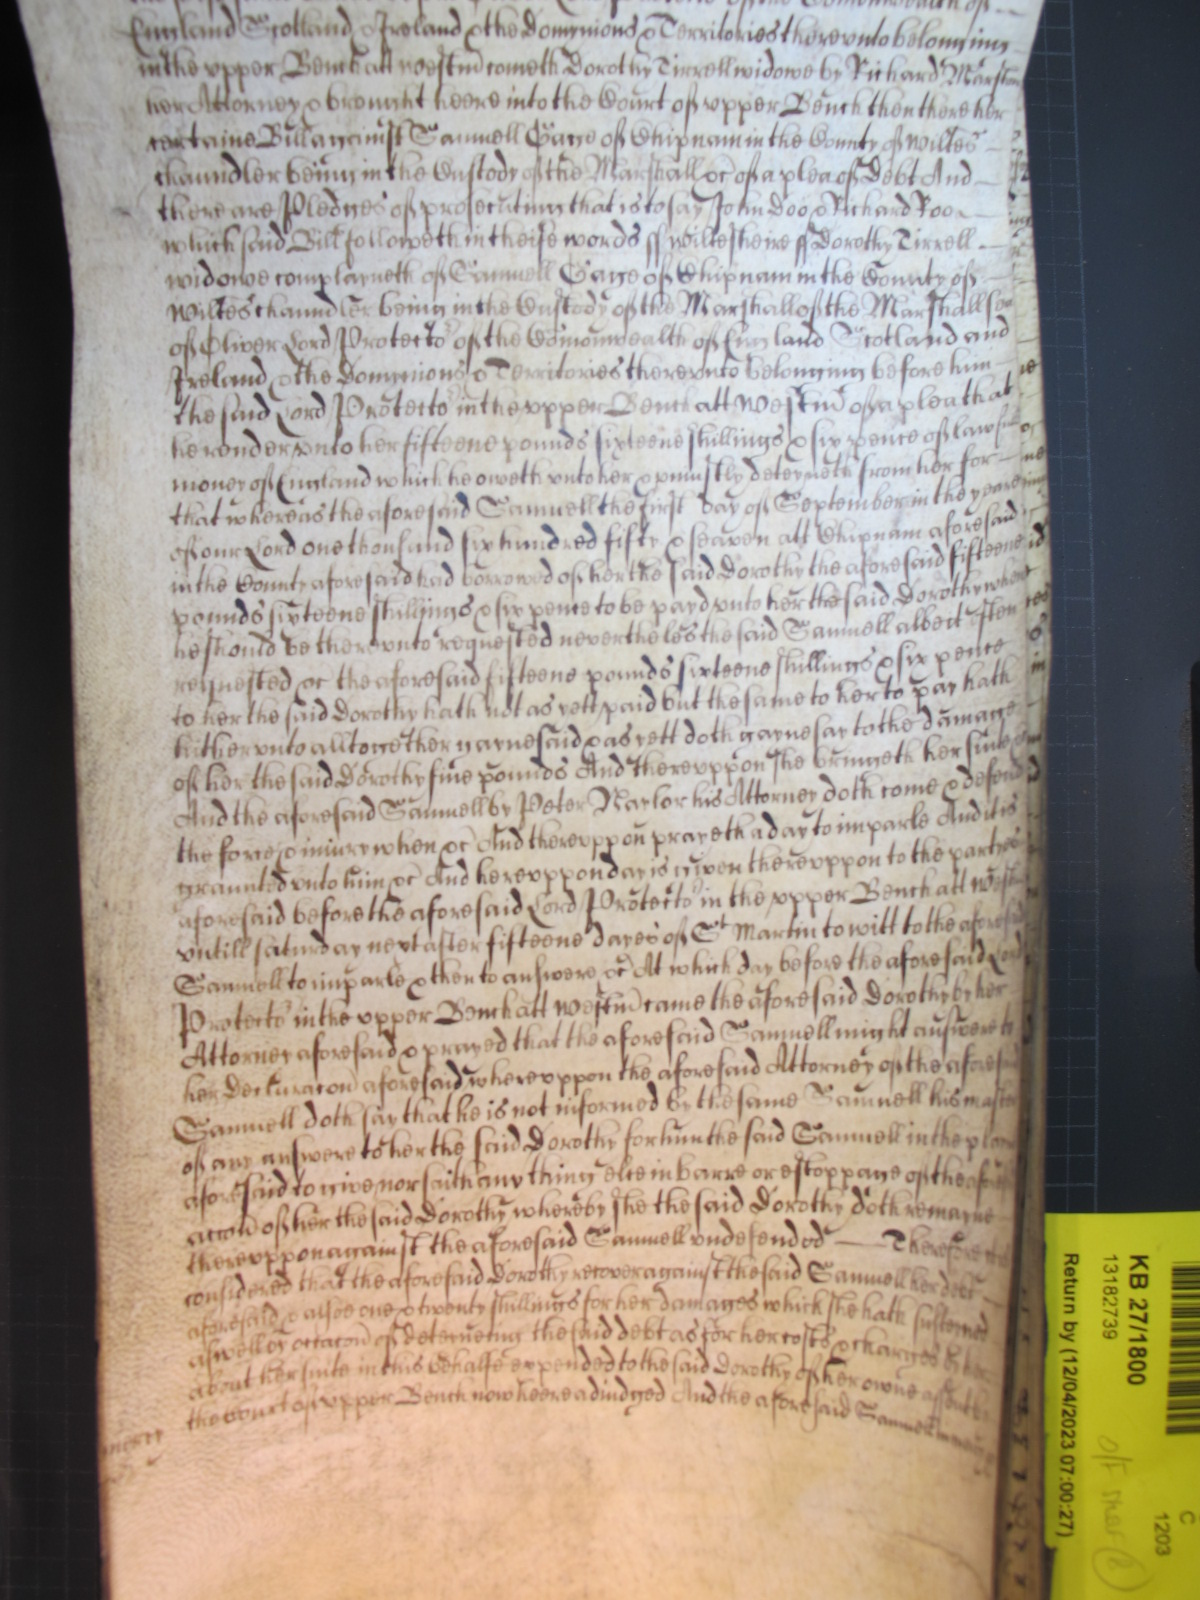 England Scotland & Ireland & the Dominions & Territories therevnto belonging
in the vpper Bench att Westm̄ cometh Dorothy Tirrell widowe by Richard Marsham
her Attorney & brought heere into the Court of vpper Bench then there her
certaine Bill against Samuell Gage of Chipnam in the County of Wiltes
chaundler being in the Custody of the Marshall &c of a plea of Debt And
there are Pledges of prosecuting that is to say John Doo & Richard Roo
which said Bill followeth in theise words ss Wiltesheire ss Dorothy Tirrell
widowe complayneth of Samuell Gage of Chipnam in the County of
Wiltes chaundler being in the Custody of the Marshall of the Marshallsea
of Oliver Lord Protector of the Comonwealth of England Scotland and
Ireland & the Dominions & Territories therevnto belonging before him
the said Lord Protector in the vpper Bench att Westm̄ of a plea that
he render vnto her fifteene pounds sixteene shillings & six pence of lawfull
money of England which he oweth vnto her & vniustly deteyneth from her for
that whereas the aforesaid Samuell the first day of September in the yeare
of our Lord one thousand six hundred fifty & seaven att Chipnam aforesaid
in the County aforesaid had borrowed of her the said Dorothy the aforesaid fifteene
pounds sixteene shillings & six pence to be payd vnto her the said Dorothy when
he should be therevnto requested neverthelesse the said Samuell albeit often
requested &c the aforesaid fifteene pounds sixteene shillings & six pence
to her the said Dorothy hath not as yett paid but the same to her to pay hath
hithervnto alltogether gaynesaid & as yett doth gaynesay to the damage
of her the said Dorothy five pounds And therevppon she bringeth her suite
And the aforesaid Samuell by Peter Naylor his Attorney doth come & defend
the force & iniury when &c And therevppon prayeth a day to imparle And it is
graunted vnto him &c And herevppon day is given therevppon to the partyes
aforesaid before the aforesaid Lord Protector in the vpper Bench att Westm̄
vntill saturday next after fifteene dayes of St Martin to witt to the aforesaid
Samuell to imparle & then to answere &c At which day before the aforesaid Lord
Protector in the vpper Bench att Westm̄ came the aforesaid Dorothy by her
Attorney aforesaid & prayed that the aforesaid Samuell might answere to
her declaracon aforesaid wherevppon the aforesaid Attorney of the aforesaid
Samuell doth say that he is not informed by the same Samuell his master
of any answere to her the said Dorothy for him the said Samuell in the plea
aforesaid to give nor saith any thing else in barre or estoppage of the aforesaid
accon of her the said Dorothy whereby she the said Dorothy doth remayne
therevppon against the aforesaid Samuell vndefended Therefore
considered that the aforesaid Dorothy recover against the said Samuell her debt
aforesaid & alsoe one & twenty shillings for her damages which she hath susteyned
aswell by occacon of deteyneing the said debt as for her costs & charges by her
about her suite in this behalfe expended to the said Dorothy of her owne assent by
the Court of vpper Bench now heere adiudged And the aforesaid Samuell in mercy &c
mercy
KB 27/1800
13182739
Return by (12/04/2023 07:00:27)
C
1203